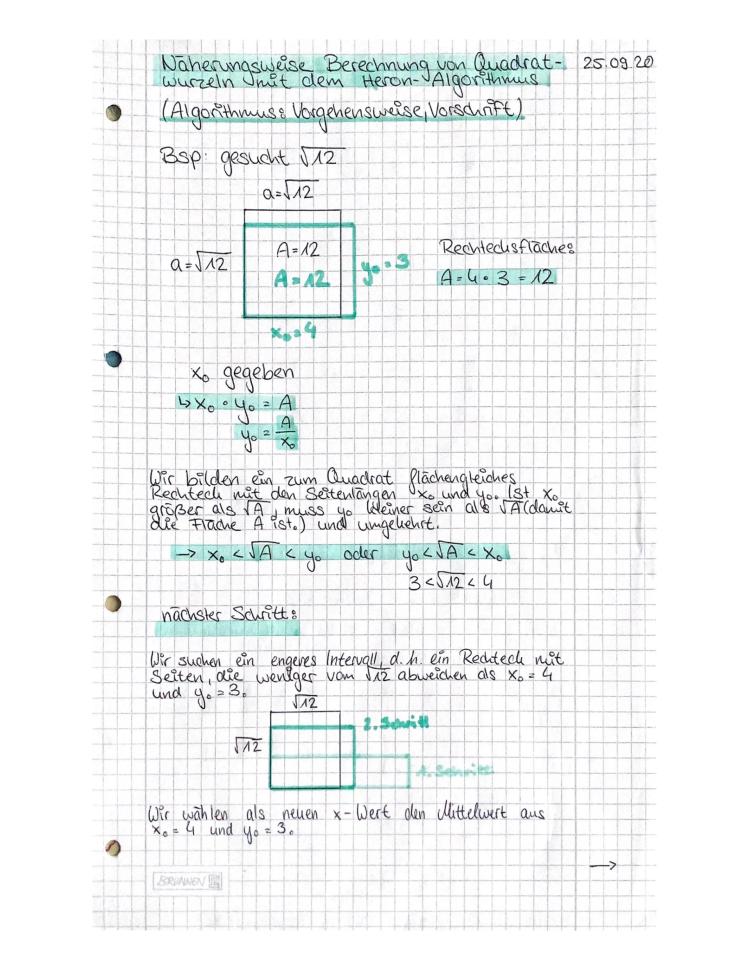 Näherungsweise Berechnung von Quadrat- 25.09.20
wurzeln mit dem Heron-Algorithmus
(Algorithmus: Vorgehensweise, Vorschrift)
Bsp: gesucht √12
a=√12
a=√12
A=12
A=12
y₀=3
x₀=4
Rechtecksfläche:
A=4·3=12
x₀ gegeben
↳ x₀·y₀ = A
y₀ = A/x₀
Wir bilden ein zum Quadrat flächengleiches
Rechteck mit den Seitenlängen x₀ und y₀. Ist x₀
größer als √A, muss y₀ kleiner sein als √A (damit
die Fläche A ist.) und umgekehrt.
→ x₀ < √A < y₀ oder y₀ < √A < x₀
3 < √12 < 4
nächster Schritt:
Wir suchen ein engeres Intervall, d.h. ein Rechteck mit
Seiten, die weniger von √12 abweichen als x₀ = 4
und y₀ = 3.
√12
2. Schritt
√12
1. Schritt
Wir wählen als neuen x-Wert den Mittelwert aus
x₀ = 4 und y₀ = 3.
→
BRUNNEN